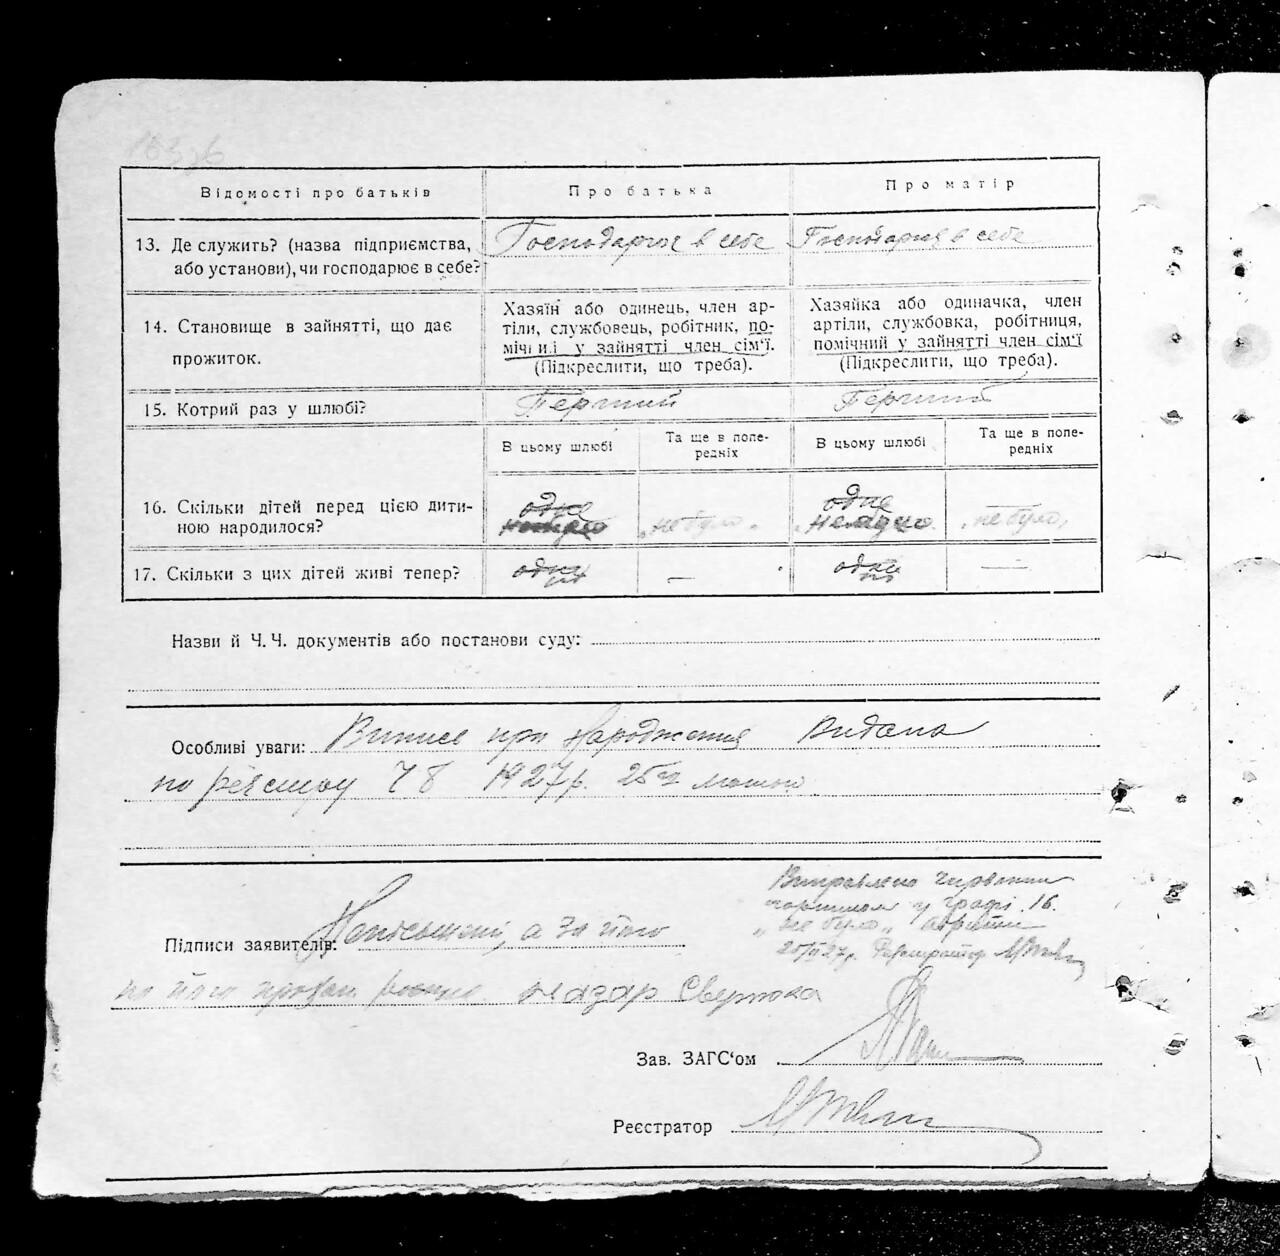 Відомості про батьків
Про батька
Про матір
13. Де служить? (назва підприємства, або установи), чи господарює в себе?
Господарює в себе
Господарює в себе
14. Становище в зайнятті, що дає прожиток.
Хазяїн або одинець, член ар-
тіли, службовець, робітник, по-
мічний у зайнятті член сім'ї.
(Підкреслити, що треба).
Хазяйка або одиначка, член
артіли, службовка, робітниця,
помічний у зайнятті член сім'ї
(Підкреслити, що треба).
15. Котрий раз у шлюбі?
Перший
Перший
В цьому шлюбі
Та ще в попе-
редніх
В цьому шлюбі
Та ще в попе-
редніх
16. Скільки дітей перед цією дити-
ною народилося?
одне
„не було"
одне
„не було"
17. Скільки з цих дітей живі тепер?
—
—
Назви й Ч. Ч. документів або постанови суду:
Особливі уваги: Випись про народження Видана
по реєстру 78 1927р. 25го лютого
Виправлено червоним
чорнилом у графі 16.
„не було"
Реєстратор
Підписи заявителів: Неписьмений, а за його
по його Назар
Зав. ЗАГС'ом
Реєстратор